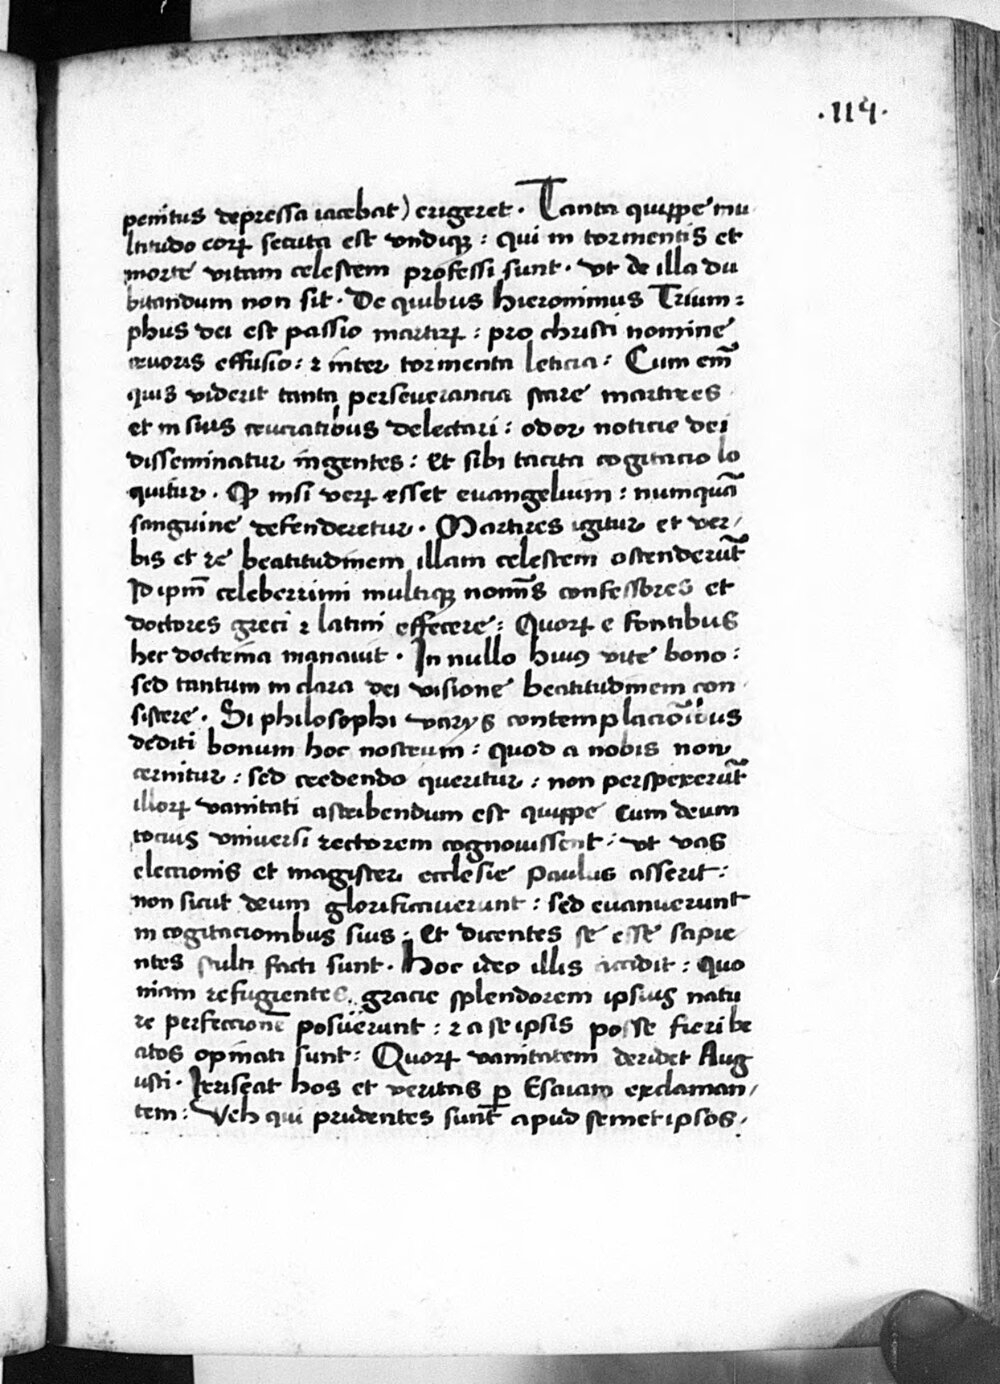 ·114·
penitus depressa iacebat) erigeret · Tanta quippe mu
ltitudo eorꝝ secuta est vndiqꝫ : qui in tormentis et
morte vitam celestem professi sunt · vt de illa du
bitandum non sit · De quibus hieronimus Trium=
phus dei est passio martirꝝ : pro christi nomine
cruoris effusio : ⁊ inter tormenta leticia : Cum em̄
quis viderit tanta perseverancia stare martires
et in suis cruciatibus delectari : odor noticie dei
disseminatur ingentes : et sibi tacita cogitacio lo
quitur · Ꝙ nisi verꝝ esset euangelium : numquā
sanguine defenderetur · Martires igitur et ver/
bis et re beatitudinem illam celestem ostenderūt
Id ipm̄ celeberrimi multiqꝫ nomīs confessores et
doctores greci ⁊ latini effecere : Quorꝝ e fontibus
hec doctrina manauit · In nullo huiꝰ vite bono :
sed tantum in clara dei visione beatitudinem con
sistere · Si philosophi varijs contemplaciōibus
dediti bonum hoc nostrum : quod a nobis non
cernitur : sed credendo queritur : non perspexerūt
illorꝝ vanitati ascribendum est quippe cum deum
tocius vniuersi rectorem cognouissent : vt vas
electionis et magister ecclesie paulus asserit :
non sicut deum glorificauerunt : sed euanuerunt
in cogitacionibus suis : Et dicentes se esse sapie
ntes stulti facti sunt · Hoc ideo illis accidit : quo
niam refugientes gracie splendorem ipsius natu
re perfeccionē posuerunt : ⁊ a se ipsis posse fieri be
atos opinati sunt : Quorꝝ vanitatem deridet Aug
usti · Irriseat hos et veritas ꝑ Esaiam exclaman/
tem : Veh qui prudentes sunt apud semet ipsos ·